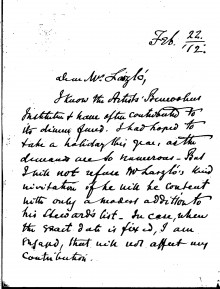 Feb. 22. /12.
dear Mr Laszló,
I know the Artists' Benevolent
Institution & have often contributed to
its dinner fund. I had hoped to
take a holiday this year, as the
demands are so numerous — But
I will not refuse Mr Laszló's kind
invitation if he will be content
with only a modest addition to
his Steward's list — In case, when
the exact date is fixed, I am
engaged, that will not affect my
contribution.